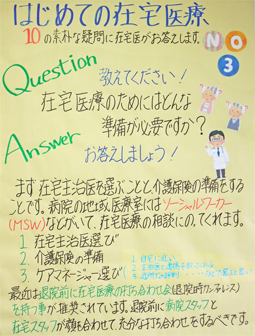 はじめての在宅医療
10の素朴な疑問に在宅医がお答えします。
NO
3
Question
教えてください!
在宅医療のためにはどんな
準備が必要ですか?
Answer
お答えしましょう!
まず在宅主治医を選ぶことと、介護保険の準備をする
ことです。病院の地域医療室にはソーシャルワーカー
(MSW)などがいて、在宅医療の相談にのってくれます。
1 在宅主治医選び
2 介護保険の準備
3 ケアマネージャー選び
最近は退院前に在宅医療の打ち合わせ会(退院時カンファレンス)
を持つ事が推奨されています。退院前に病院スタッフと
在宅スタッフが顔を合わせて、充分な打ち合わせをするべきです。